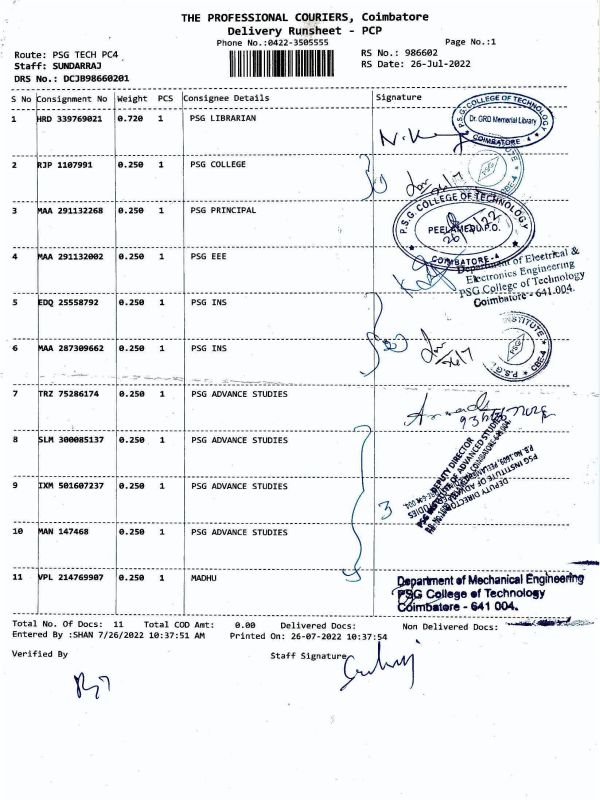 THE PROFESSIONAL COURIERS, Coimbatore
Delivery Runsheet - PCP
Phone No.:0422-3505555
Page No.:1
Route: PSG TECH PC4
RS No.: 986602
Staff: SUNDARRAJ
RS Date: 26-Jul-2022
DRS No.: DCJB98660201
S No Consignment No Weight PCS Consignee Details Signature
1 HRD 339769021 0.720 1 PSG LIBRARIAN
P.S.G. COLLEGE OF TECHNOLOGY
Dr. GRD Memorial Library
COIMBATORE - 4
2 RJP 1107991 0.250 1 PSG COLLEGE
26/7
CBE-4
3 MAA 291132268 0.250 1 PSG PRINCIPAL
P.S.G. COLLEGE OF TECHNOLOGY
PEELAMEDU P.O.
COIMBATORE-4
4 MAA 291132002 0.250 1 PSG EEE
Department of Electrical &
Electronics Engineering
PSG College of Technology
Coimbatore - 641 004.
5 EDQ 25558792 0.250 1 PSG INS
6 MAA 287309662 0.250 1 PSG INS
26/7
INSTITUTE
PSG
P.S.G. CBE-4
7 TRZ 75286174 0.250 1 PSG ADVANCE STUDIES
8 SLM 300085137 0.250 1 PSG ADVANCE STUDIES
DEPUTY DIRECTOR
PSG INSTITUTE OF ADVANCED STUDIES
9 IXM 501607237 0.250 1 PSG ADVANCE STUDIES
3
10 MAN 147468 0.250 1 PSG ADVANCE STUDIES
11 VPL 214769907 0.250 1 MADHU
Department of Mechanical Engineering
PSG College of Technology
Coimbatore - 641 004.
Total No. Of Docs: 11 Total COD Amt: 0.00 Delivered Docs: Non Delivered Docs:
Entered By :SHAN 7/26/2022 10:37:51 AM Printed On: 26-07-2022 10:37:54
Verified By Staff Signature